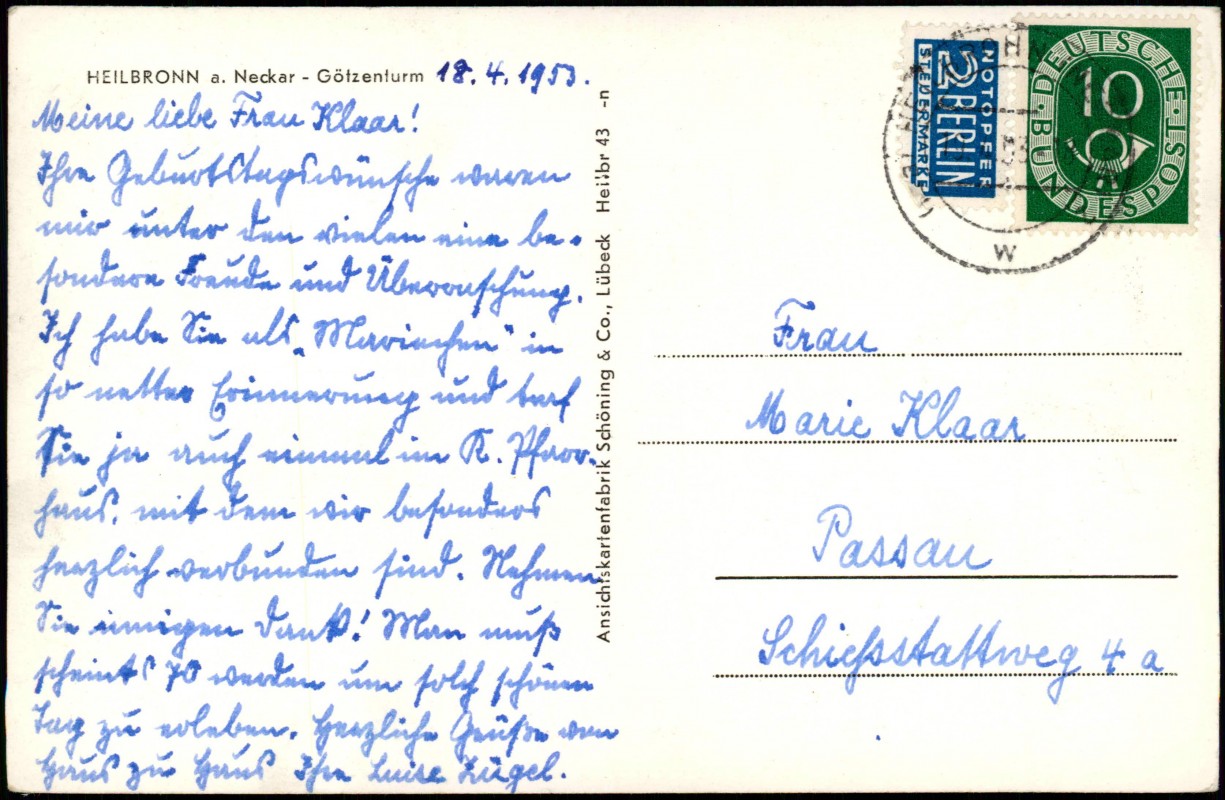 HEILBRONN a. Neckar - Götzenturm 18.4.1953.
Meine liebe Frau Klaar!
Ihre Geburtstagswünsche waren
mir unter den vielen eine be-
sondere Freude und Überraschung.
Ich habe Sie als „Mariechen" in
so netter Erinnerung und traf
Sie ja auch einmal im K. Pfarr-
haus, mit dem wir besonders
herzlich verbunden sind. Nehmen
Sie innigen Dank! Man muß
scheints 70 werden um solch schönen
Tag zu erleben. Herzliche Grüße von
Haus zu Haus Ihre Luise Zügel.
Ansichtskartenfabrik Schöning & Co., Lübeck Heilbr 43 -n
NOTOPFER
2 BERLIN
STEUERMARKE
DEUTSCHE
BUNDESPOST
10
w
Frau
Marie Klaar
Passau
Schießstattweg 4 a